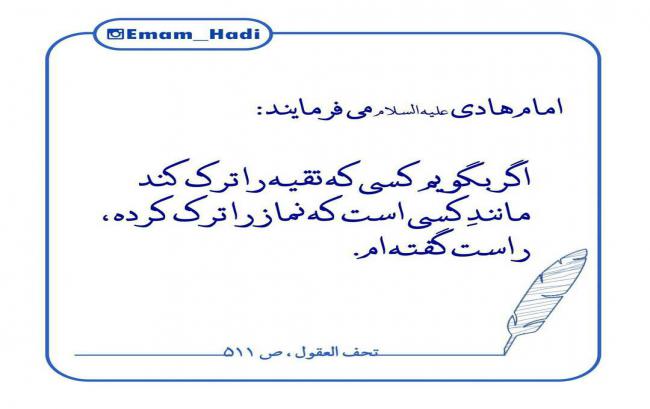 Emam_Hadi
امام هادی علیه السلام می فرمایند:
اگر بگویم کسی که تقیه را ترک کند
مانندِ کسی است که نماز را ترک کرده،
راست گفته ام.
تحف العقول، ص ۵۱۱